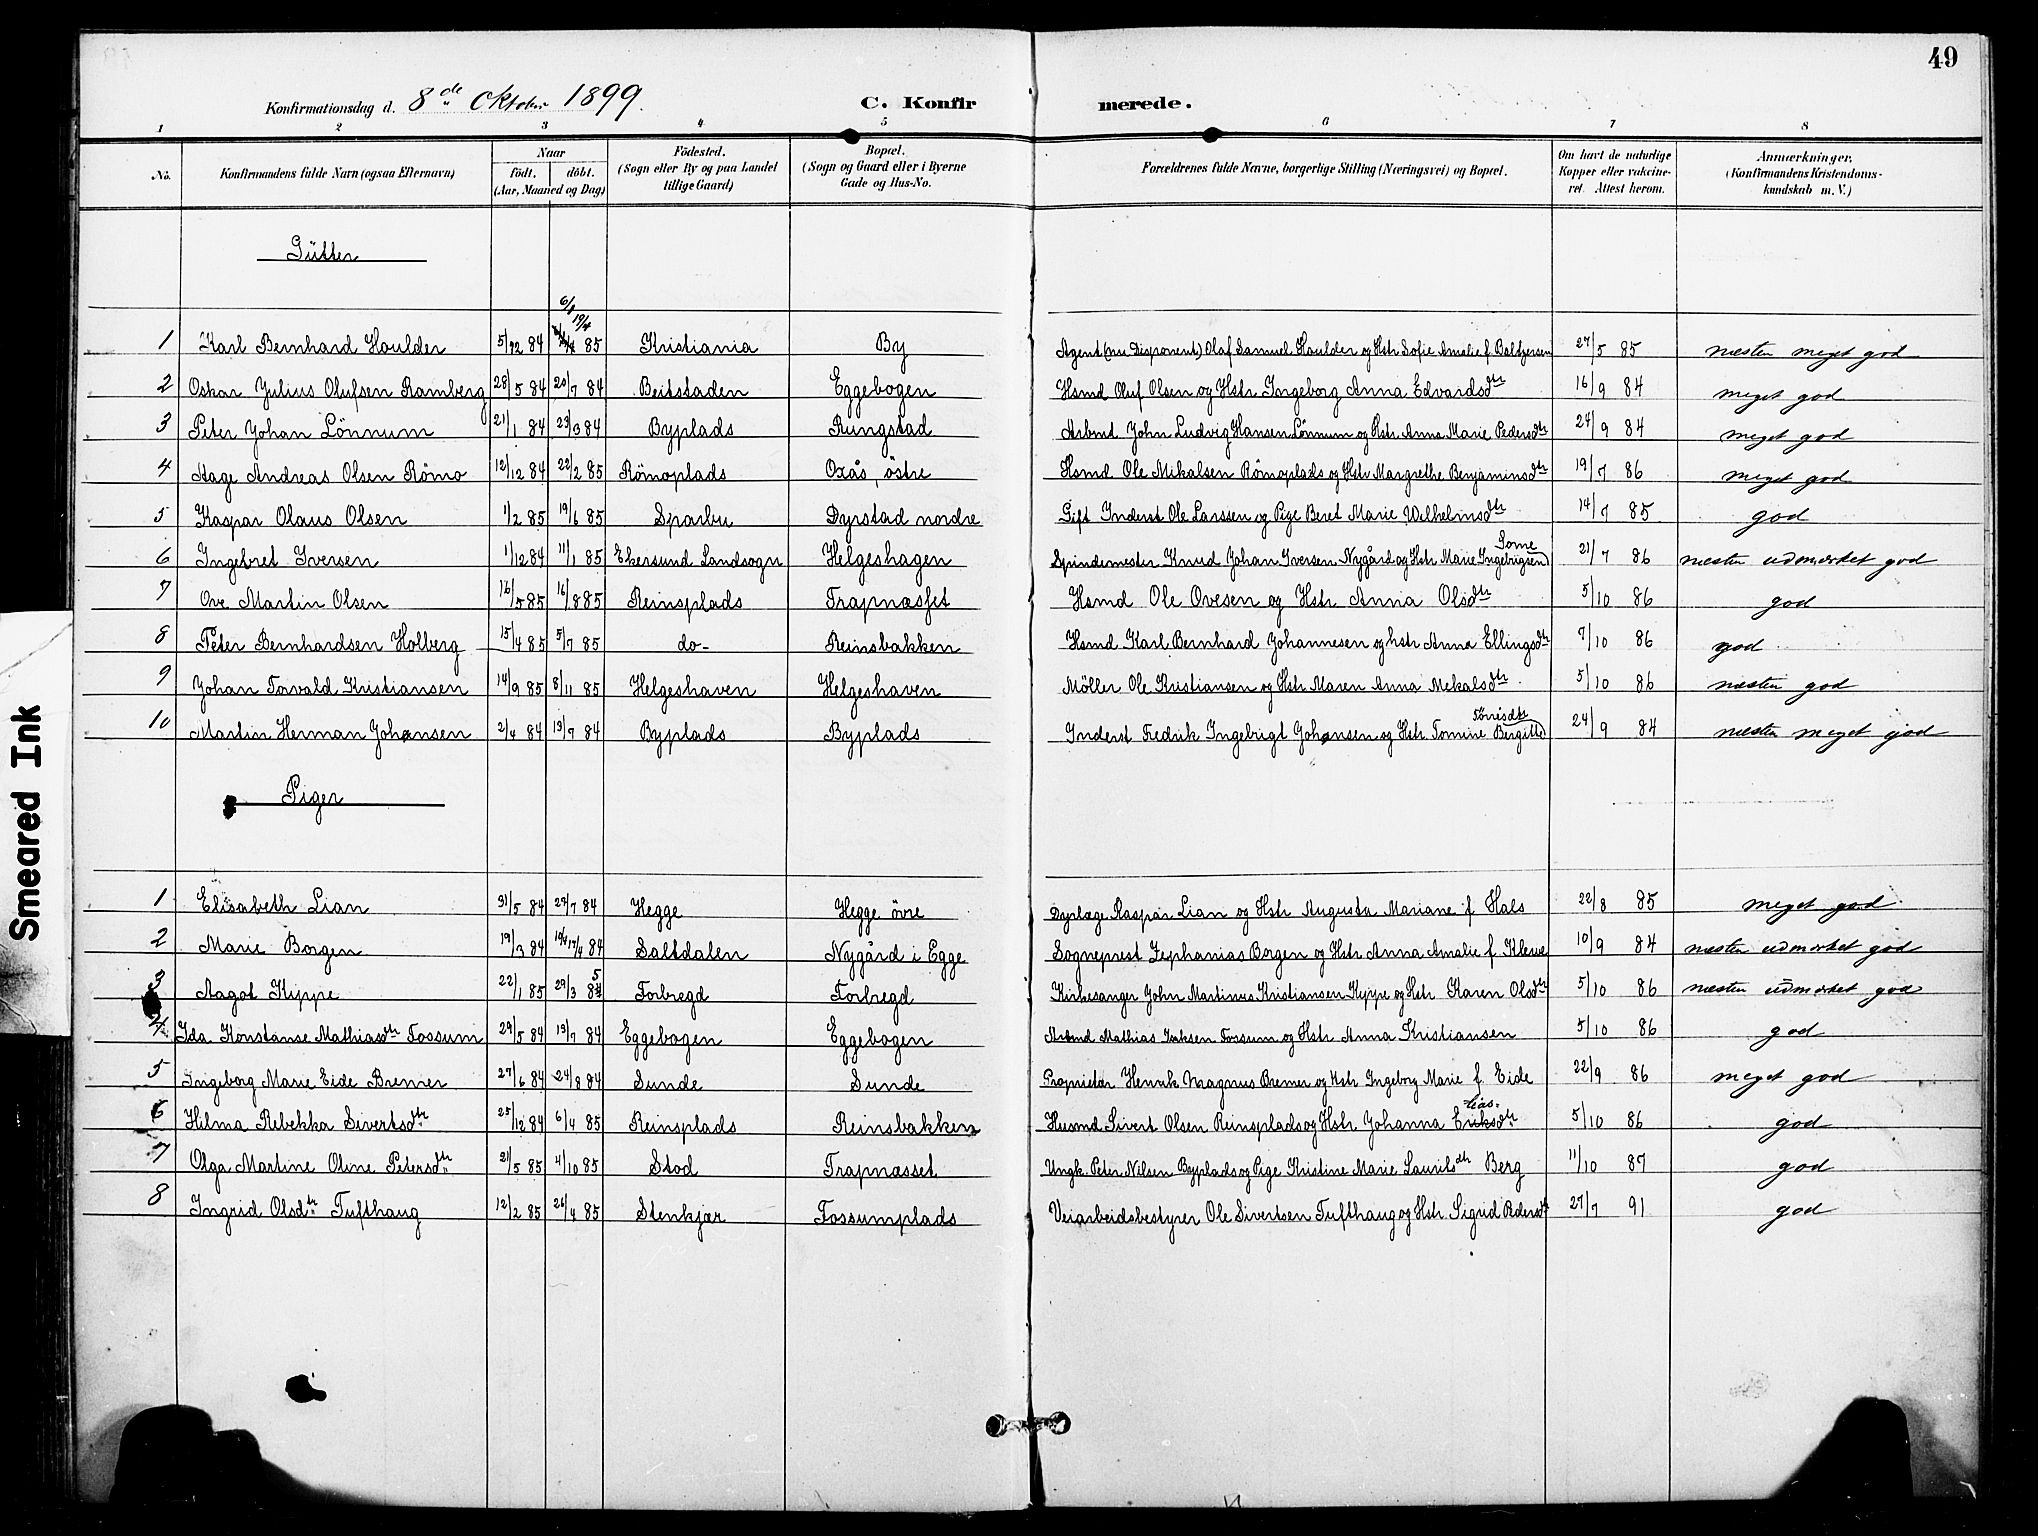 49
Konfirmationsdag d. 8de Oktober 1899.
C. Konfirmerede.
1 2 3 4 5 6 7 8
No. Konfirmandens fulde Navn (ogsaa Efternavn) Naar födt. döbt. (Aar, Maaned og Dag) Födested. (Sogn eller By og paa Landet tillige Gaard) Bopæl. (Sogn og Gaard eller i Byerne Gade og Hus-No. Forældrenes fulde Navne, borgerlige Stilling (Næringsvei) og Bopæl. Om havt de naturlige Kopper eller vakcineret. Attest herom. Anmærkninger. (Konfirmandens Kristendomskundskab m. V.)
Gütter
6/1 19/4
1 Karl Bernhard Houlder 5/12 84 85 Kristiania By Agent (nu Disponent) Olaf Samuel Houlder og Hstr Sofie Amalie f. Baltzersen 27/5 85 næsten meget god
2 Oskar Julius Olufsen Ramberg 28/5 84 20/7 84 Beitstaden Eggebogen Hsmd Oluf Olsen og Hstr Ingeborg Anna Edvardsdtr 16/9 84 meget god
3 Peter Johan Lönnum 21/1 84 23/3 84 Byplads Rungstad Arbmd John Ludvig Hansen Lönnum og Hstr Anna Marie Pedersdtr 24/9 84 meget god
4 Aage Andreas Olsen Römo 12/12 84 22/2 85 Römoplads Oxås, östre Hsmd Ole Mikalsen Römoplads og Hstr Margrethe Benjaminsdtr 19/7 86 meget god
5 Kaspar Olaus Olsen 1/2 85 19/6 85 Sparbu Dyrstad nordre Gift Inderst Ole Larssen og Pige Beret Marie Wilhelmsdtr 14/7 85 god
6 Ingebret Iversen 1/12 84 11/1 85 Ekersund Landsogn Helgeshagen Spindemester Knud Johan Iversen Nygård og Hstr Marie Ingebrigsen Lorne 21/7 86 næsten udmærket god
7 Ove Martin Olsen 16/5 85 16/8 85 Reinsplads Trapnæsset Hsmd Ole Ovesen og Hstr Anna Olsdtr 5/10 86 god
8 Peter Bernhardsen Holberg 15/4 85 5/7 85 do- Reinsbakken Hsmd Karl Bernhard Johannesen og hstr Anna Ellingsdtr 7/10 86 god
9 Johan Torvald Kristiansen 14/9 85 8/11 85 Helgeshaven Helgeshaven Möller Ole Kristiansen og Hstr Maren Anna Mekalsdtr. 5/10 86 næsten god
10 Martin Herman Johansen 2/4 84 13/7 84 Byplads Byplads Inderst Fredrik Ingebrigt Johansen og Hstr Tomine Bergitte Tørrisdtr 24/9 84 næsten meget god
Piger
1 Elisabeth Lian 31/5 84 27/7 84 Hegge Hegge övre Dyrlæge Kaspar Lian og Hstr Augusta Mariane f. Hals 22/8 85 meget god
2 Marie Borgen 19/3 84 17/4 84 Saltdalen Nygård i Egge Sogneprest Zephanias Borgen og Hstr Anna Amalie f. Klewe 10/9 84 næsten udmærket god
3 Aagot Kippe 22/1 85 29/3 85 Forbregd Forbregd Kirkesanger John Martinus Kristiansen Kippe og Hstr Karen Olsdtr 5/10 86 næsten udmærket god
4 Ida Konstanse Mathiasdtr Fossum 29/5 84 13/7 84 Eggebogen Eggebogen Arbmd Mathias Isaksen Fossum og Hstr Anna Kristiansen 5/10 86 god
5 Ingeborg Marie Eide Bremer 27/6 84 24/8 84 Sunde Sunde Proprietær Henrik Magnus Bremer og Hstr Ingeborg Marie f. Eide 22/9 86 meget god
6 Hilma Rebekka Sivertsdtr 25/12 84 6/4 85 Reinsplads Reinsbakken Husmd Sivert Olsen Reinsplads og Hstr Johanna Eliasdtr 5/10 86 god
7 Olga Martine Oline Petersdtr 21/5 85 4/10 85 Stod Trapnæsset Ungk. Peter Nilsen Byplads og Pige Kristine Marie Lauritsdtr Berg 11/10 87 god
8 Ingrid Olsdtr Tufthaug 12/2 85 26/4 85 Stenkjær Fossumplads Veiarbeidsbestyrer Ole Sivertsen Tufthaug og Hstr Sigrid Pedersdtr 27/7 91 god
Smeared Ink